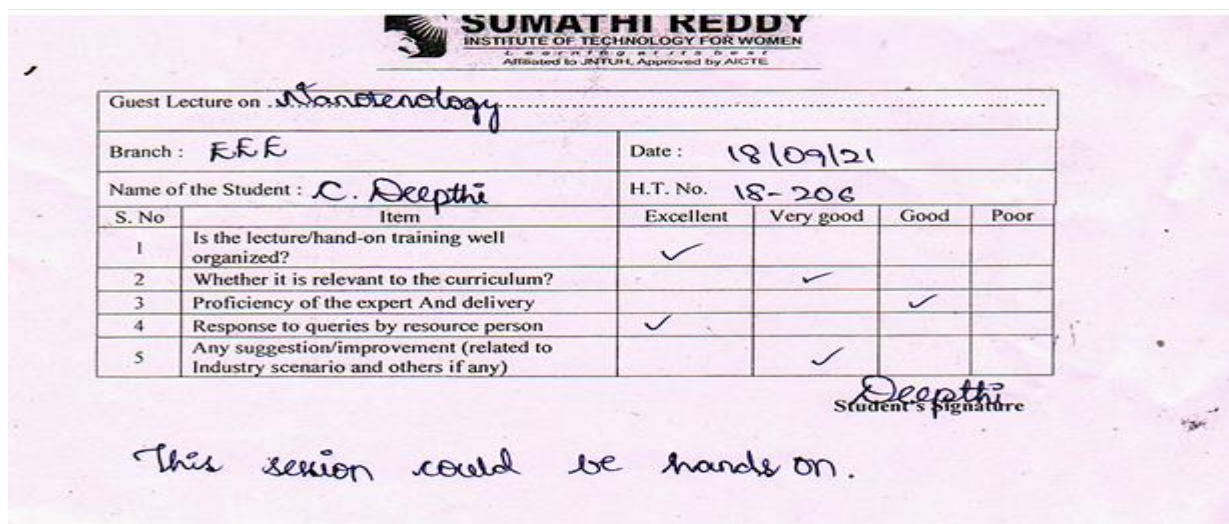 SUMATHI REDDY
INSTITUTE OF TECHNOLOGY FOR WOMEN
Learning at its best
Affiliated to JNTUH, Approved by AICTE
Guest Lecture on . Nanotenology
Branch : EEE Date : 18/09/21
Name of the Student : C. Deepthi H.T. No. 18-206
S. No Item Excellent Very good Good Poor
1 Is the lecture/hand-on training well
organized? ✓
2 Whether it is relevant to the curriculum? ✓
3 Proficiency of the expert And delivery ✓
4 Response to queries by resource person ✓
5 Any suggestion/improvement (related to
Industry scenario and others if any) ✓
Deepthi
Student's Signature
This session could be hands on.